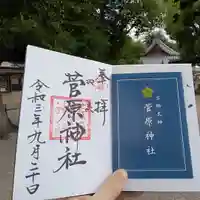 奉拝
菅原神社
令和三年九月二十日
菅原神社